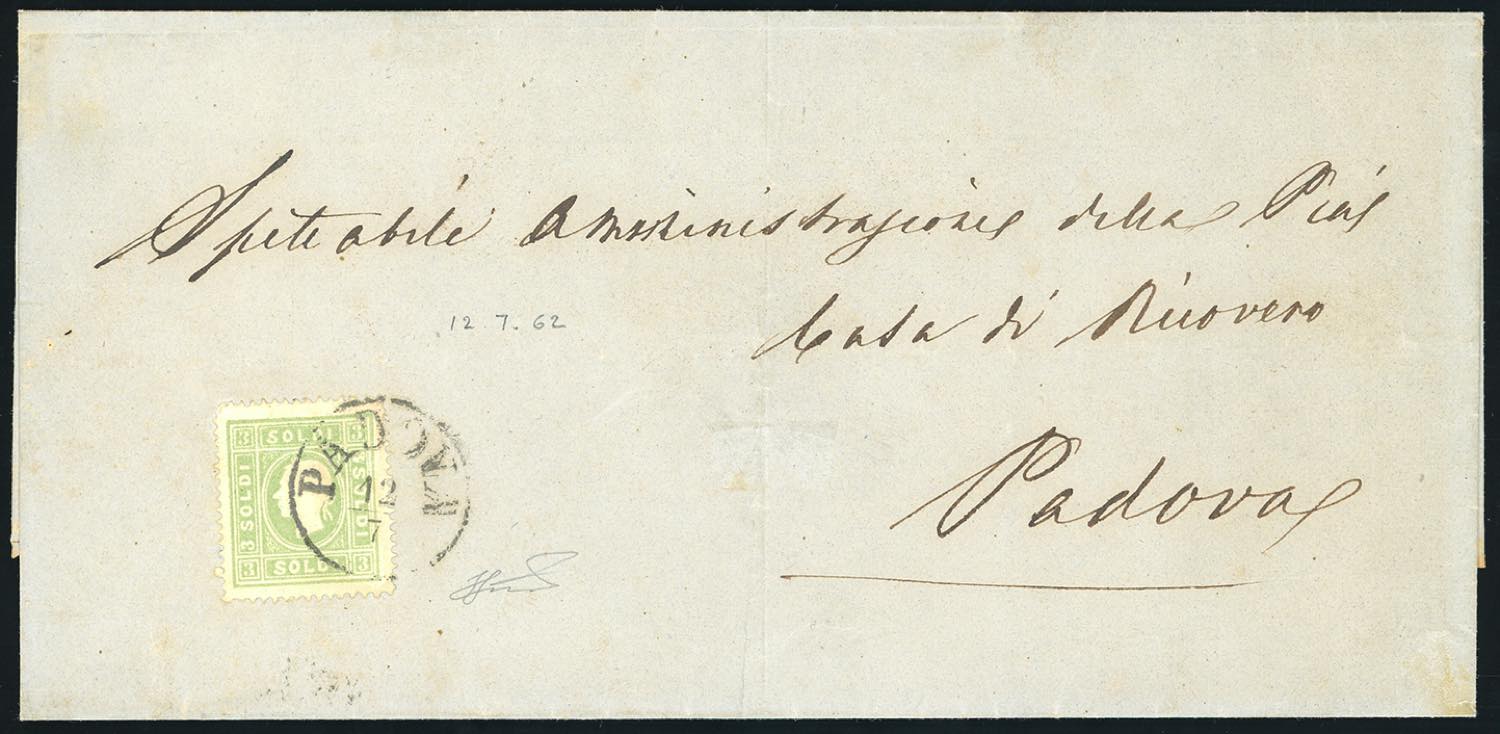 Spettabile Amministrazione della Pia
Casa di Ricovero
12.7.62
Padova
3 SOLDI 3
SOLDI
SOLDI
3 SOLDI 3
PADOVA
12
7